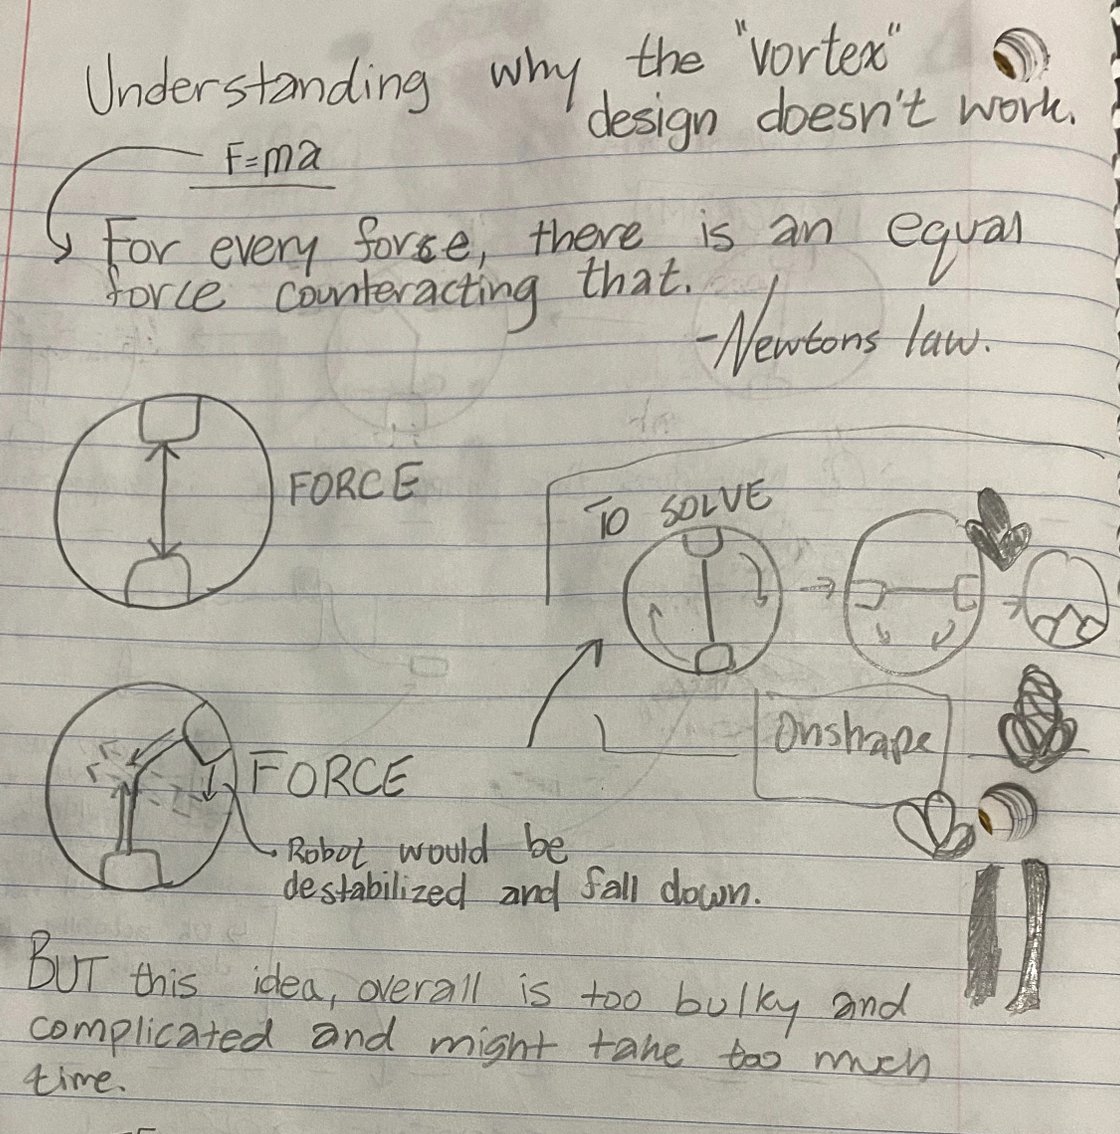 Understanding why the "vortex"
design doesn't work.
F=ma
For every force, there is an equal
force counteracting that.
-Newtons law.
FORCE
TO SOLVE
Onshape
FORCE
Robot would be
destabilized and fall down.
BUT this idea, overall is too bulky and
complicated and might take too much
time.